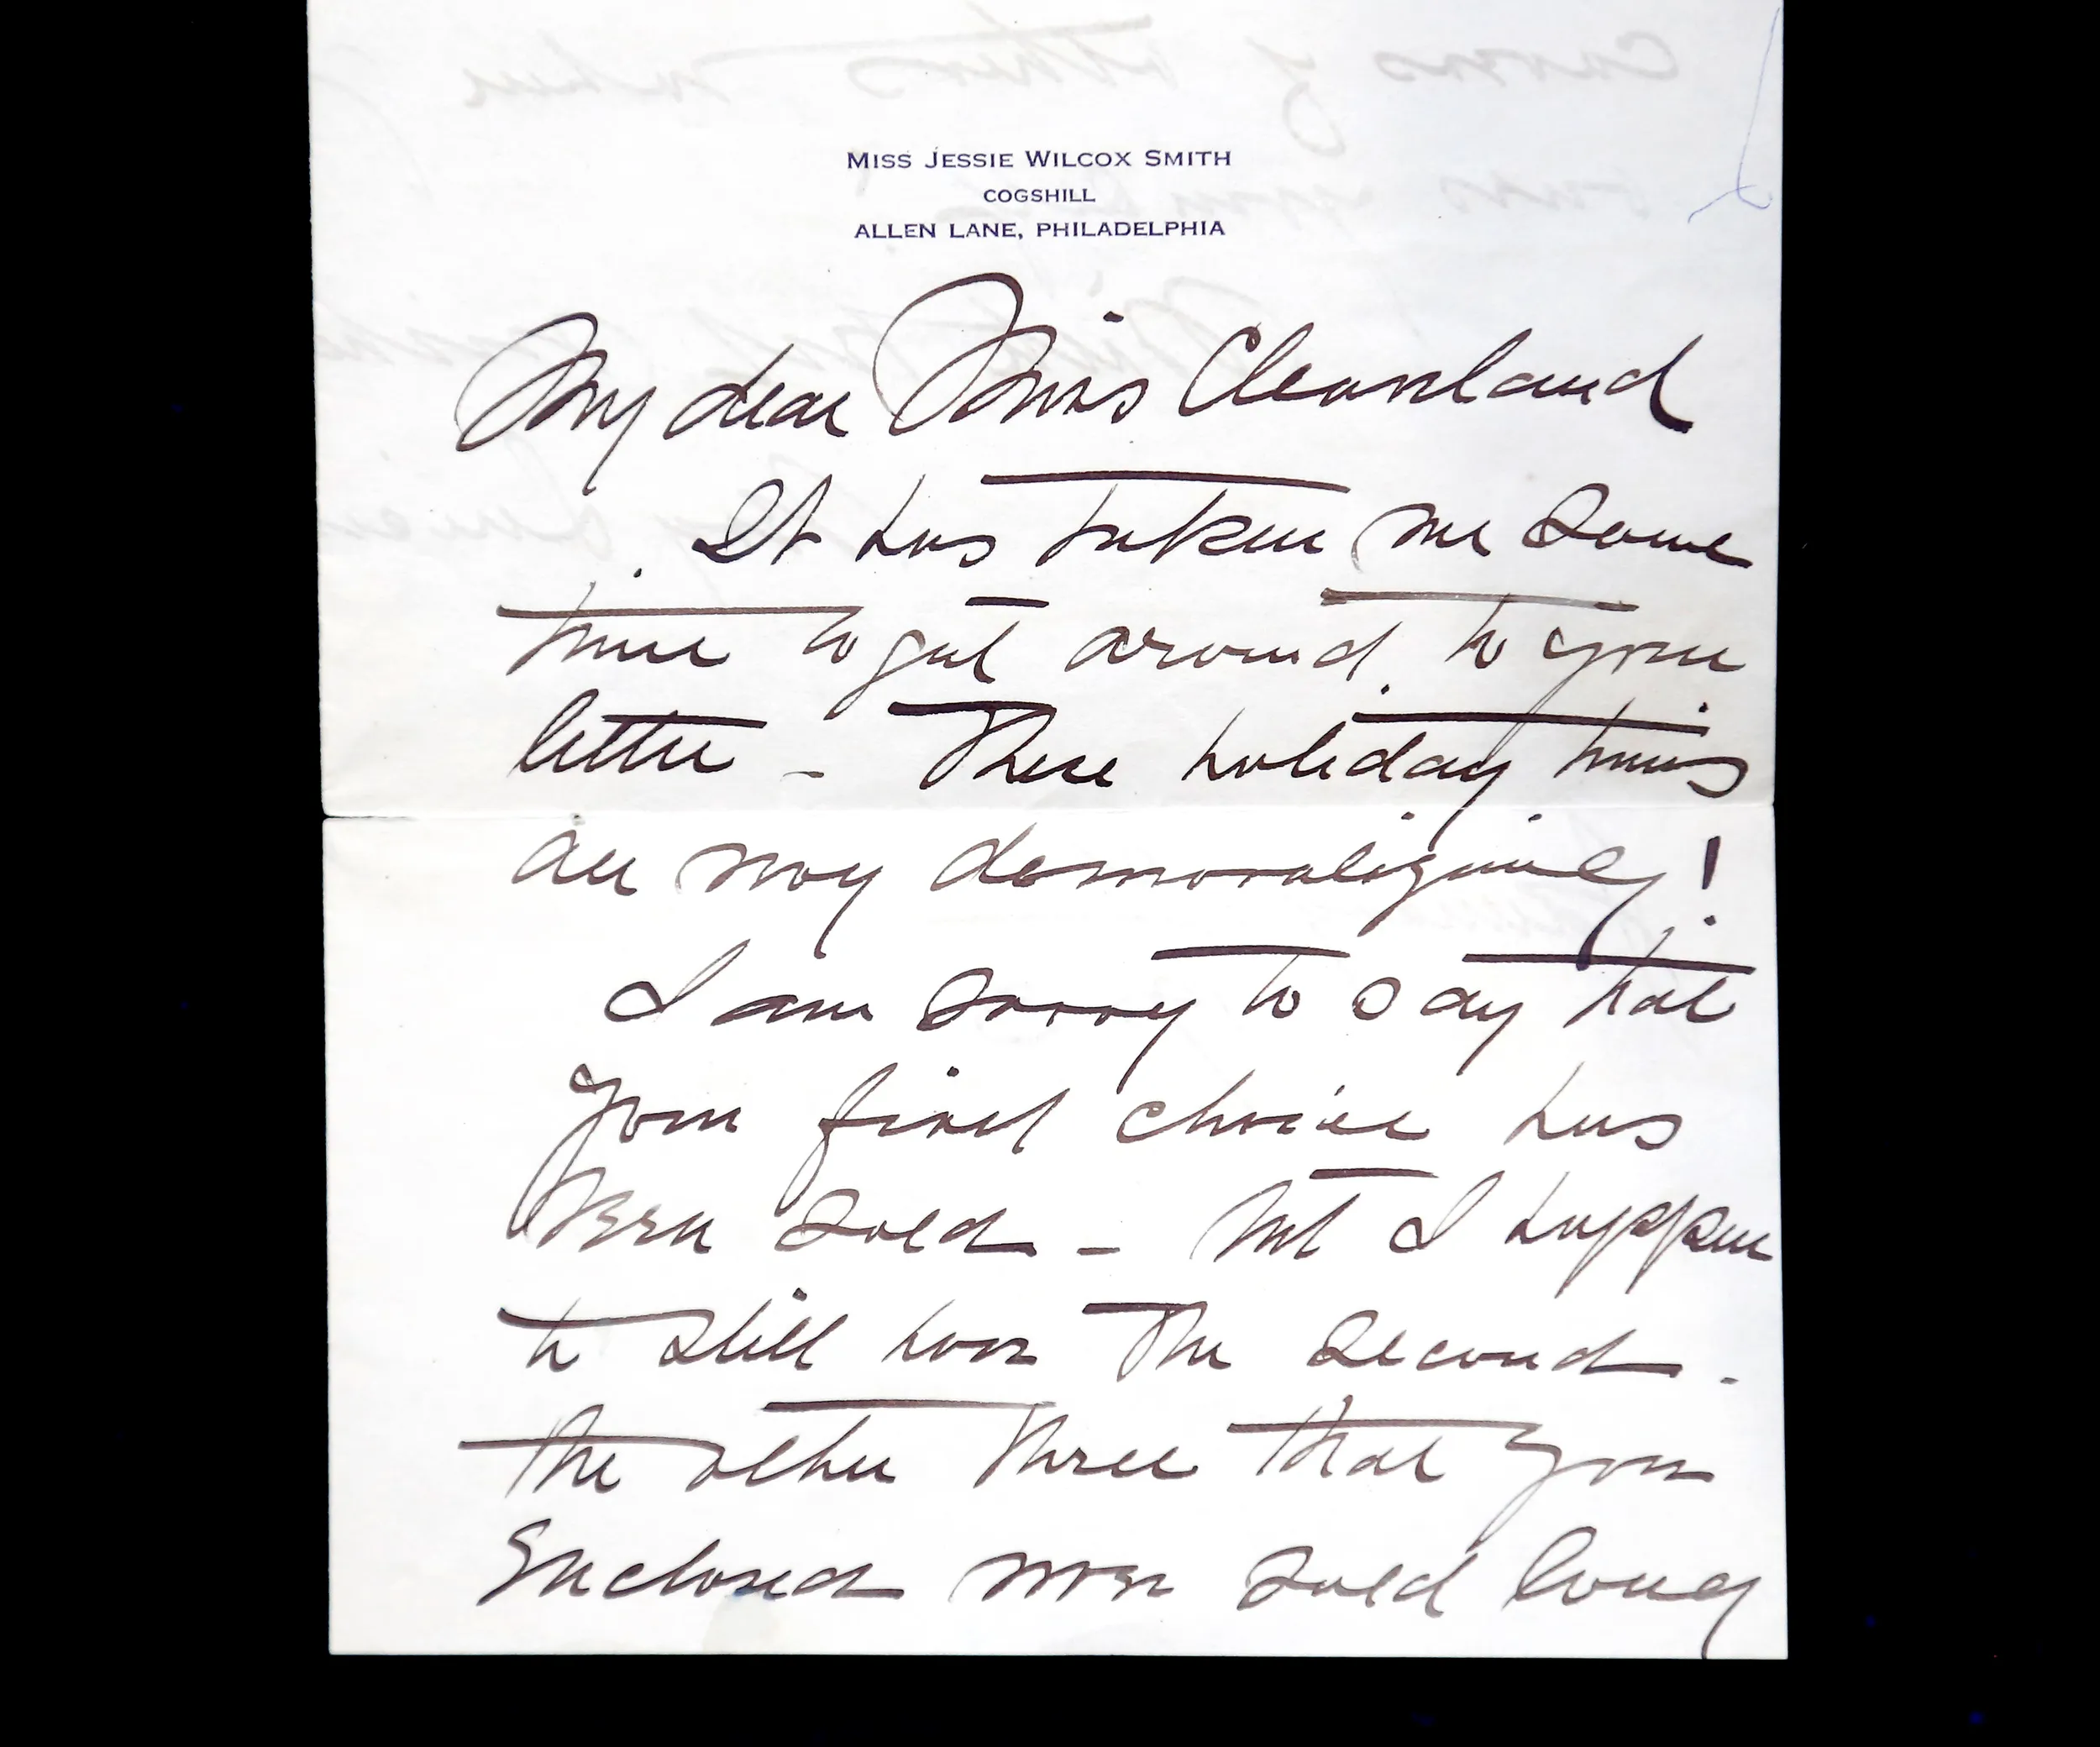 MISS JESSIE WILCOX SMITH
COGSHILL
ALLEN LANE, PHILADELPHIA
My dear Miss Cleaveland
It has taken me some
time to get around to your
letter – These holiday times
are very demoralizing!
I am sorry to say that
your first choice has
been sold – but I happen
to still have the second.
the other three that you
enclosed were sold long